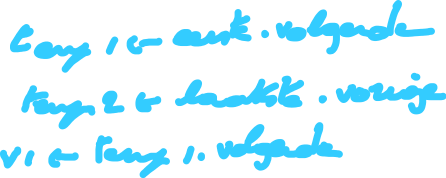 temp 1 ← eerste.volgende
temp 2 ← laatste.vorige
v1 ← temp 1.volgende